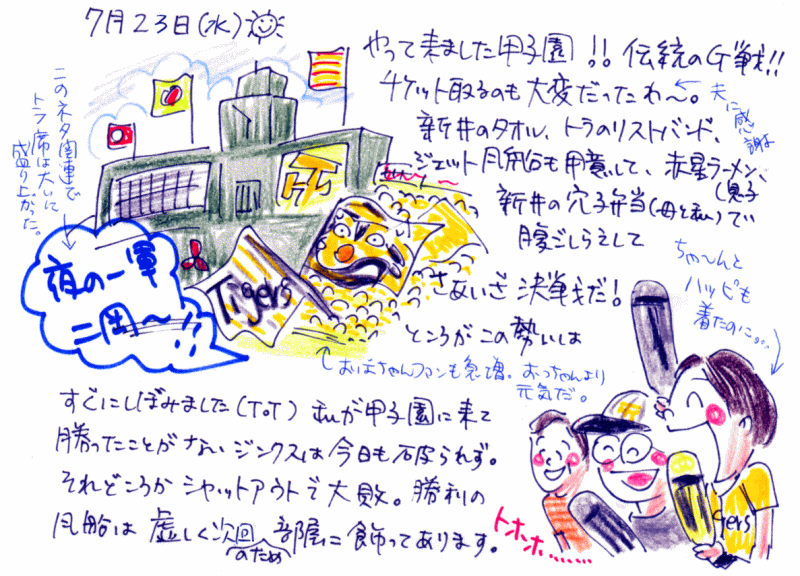 7月23日(水)
やって来ました甲子園!!伝統のG戦!!
チケット取るのも大変だったわ〜。
夫に感謝よ
新井のタオル、トラのリストバンド、
ジェット風船も用意して、赤星ラーメン、
(息子
新井の穴子弁当(母と私)で
腹ごしらえして
さあいざ決戦だ!
ところがこの勢いは
このネタ関連で
トラ席は大いに
盛り上がった。
夜の一軍
二岡〜!!
Tigers
おばちゃんファンも急増。おっちゃんより
元気だ。
ちゃ〜んと
ハッピも
着たのに...
すぐにしぼみました(T。T) 私が甲子園に来て
勝ったことがないジンクスは今日も破られず。
それどころかシャットアウトで大敗。勝利の
風船は虚しく次回のため部屋に飾ってあります。
トホホ……
gers